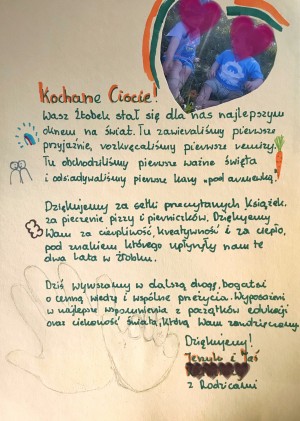 Kochane Ciocie!
Wasz żłobek stał się dla nas najlepszym
oknem na świat. Tu zawieraliśmy pierwsze
przyjaźnie, rozkręcaliśmy pierwsze
Tu obchodziliśmy pierwsze ważne święta
i odsiadywaliśmy pierwsze kary „pod
Dziękujemy za setki przeczytanych książek,
za pieczenie pizzy i pierniczków. Dziękujemy
Wam za cierpliwość, kreatywność i za ciepło,
pod znakiem którego upłynęły nam te
dwa lata w żłobku.
Dziś wyruszamy w dalszą drogę, bogatsi
o cenną wiedzę i wspólne przeżycia. Wyposażeni
w najlepsze wspomnienia z początków edukacji
oraz ciekawość świata, którą Wam zawdzięczamy.
Dziękujemy!
i Jaś
z Rodzicami